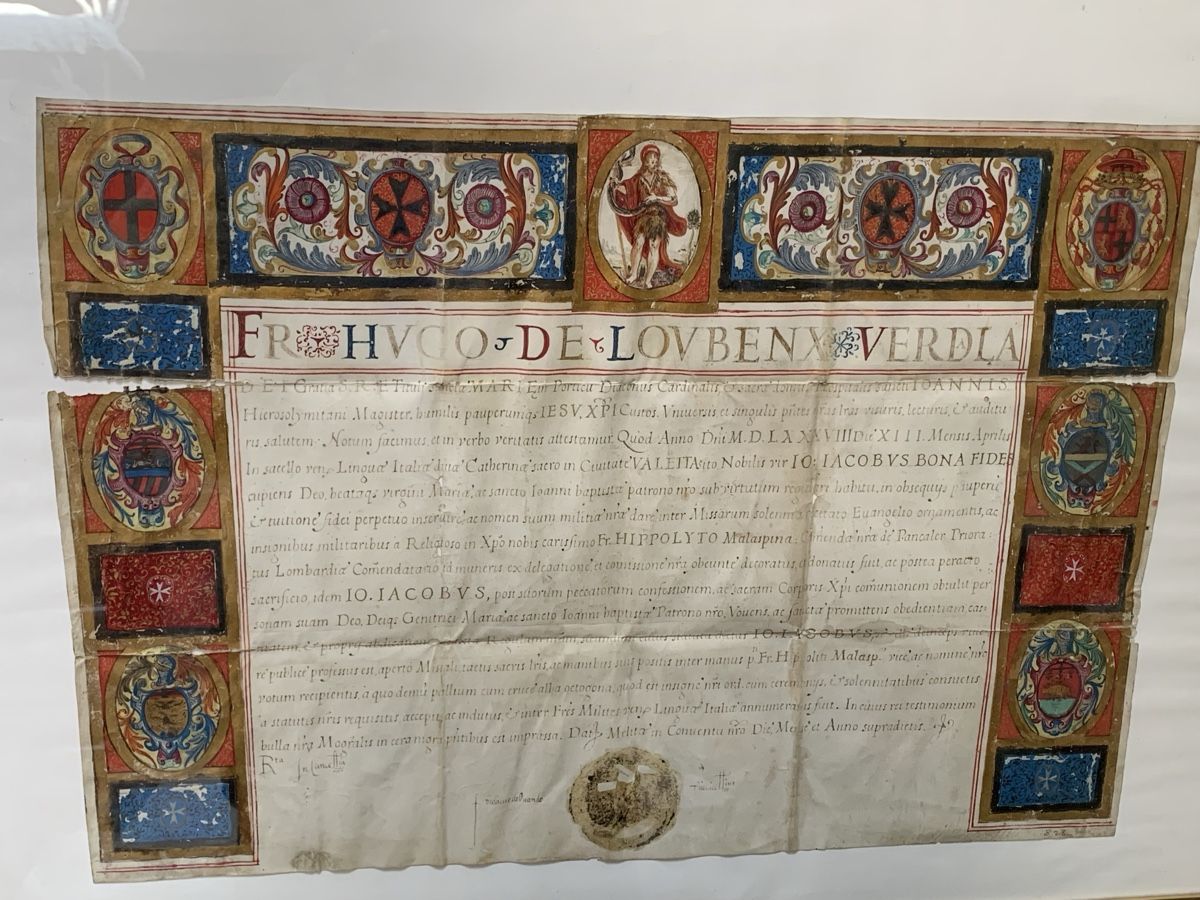 FR HVGO DE LOVBENX VERDLA
DEI Gratia S. R. Æ Tituli MARI Eiꝰ Porticu Diaconus Cardinalis, & sacræ domus Hospitalis sancti IOANNIS
Hierosolymitani Magister, humilis pauperumqs IESV XPI Custos. Vniversis et singulis pñtes nras lras visuris, lecturis, & auditu
ris, salutem. Notum facimus, et in verbo veritatis attestamur. Quod Anno Dñi M. D. LXXXVIII Die XIII. Mensis Aprilis
In sacello ven. Linguæ Italiæ divæ Catherinæ sacro in Civitate VALETTA sito Nobilis vir IO. IACOBVS BONA FIDES
cupiens Deo, beatæqs virgini Mariæ, ac sancto Ioanni baptistæ patrono nro sub virtutum habitu, in obsequijs pauperũ
& tuitione fidei perpetuo inservire, ac nomen suum militiæ nræ dare inter Missarum solennia Evangelio ornamentis, ac
insignibus militaribus a Religioso in Xpo nobis carissimo Fr. HIPPOLYTO Malaspina Comendæ nræ de Pancaler Priora
tus Lombardiæ Comendatario id muneris ex delegatione et comissione nra obeunte decoratus, adonatus fuit, ac postea peracto
sacrificio, idem IO. IACOBVS, post suorum peccatorum confessionem, ac sacram Corporis Xpi comunionem obtulit per
sonam suam Deo, Deiqs Genitrici Mariæ, ac sancto Ioanni baptistæ Patrono nro, Vovens, ac sanctæ promittens obedientiam cas
IO. IACOBVS
re publicè professus est, aperto Missali, tactis sacris lris, ac manibus suis positis inter manus pti Fr. Hippoliti Malasp. vice, ac nomine nro
votum recipientis, a quo demũ pallium cum cruce alba octogona, quod est insigne nri ord. cum ceremonijs, & solennitatibus consuetis
a statutis nris requisitis, accepit, ac indutus, & inter Fres Milites ven. Linguæ Italiæ annumeratus fuit. In cuius rei testimonium
bulla nra Magralis in cera nigra pñtibus est impressa. Dat. Melitæ in Conventu nro Die, Mense et Anno supradictis.
Rta In Cancellia